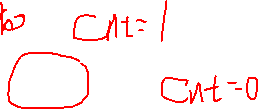 Cnt=1
Cnt=0